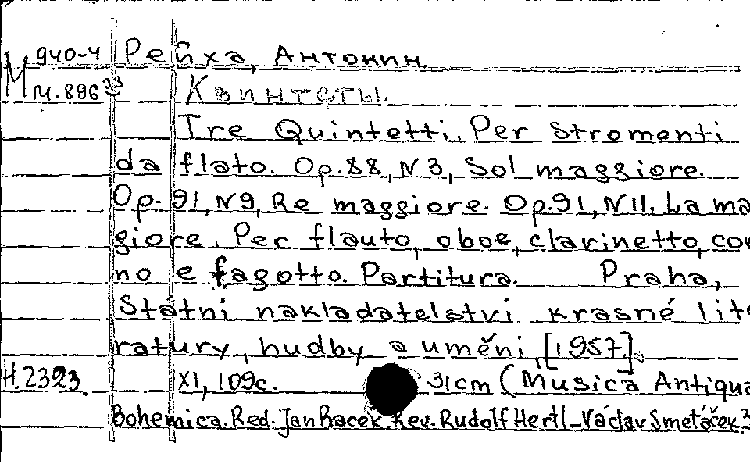 М 940-4 Рейха, Антонин.
м.896 Квинтеты.
Tre Quintetti. Per stromenti
da fiato. Op.88, N3, Sol maggiore.
Op. 91, N9, Re maggiore. Op.91, N11. La ma
giore. Per flauto, oboe, clarinetto, co
no e fagotto. Partitura. Praha,
Státni nakladatelstvi krasné lite
ratury, hudby a uměni, [1957].
H.2323. XI, 109c. 31cm (Musica Antiqua
Bohemica. Red. Jan Racek. Rev. Rudolf Hertl - Václav Smetáček.